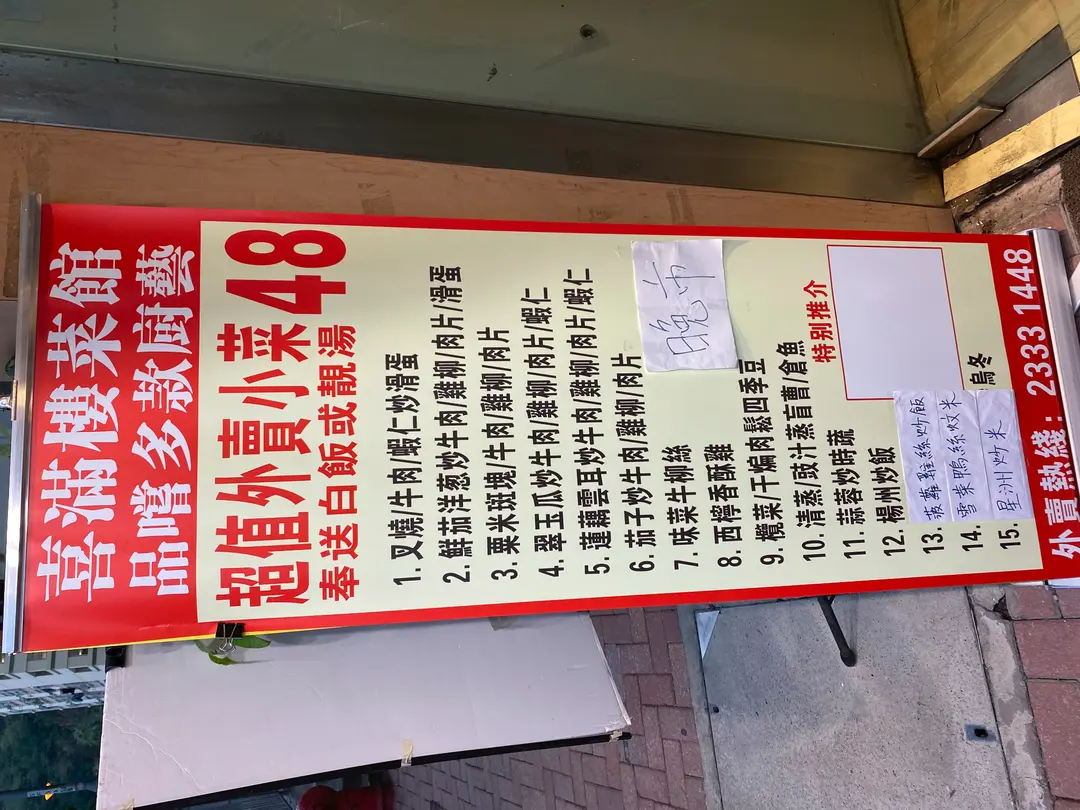 喜滿樓菜館
品嚐多款廚藝
超值外賣小菜48
奉送白飯或靚湯
1. 叉燒/牛肉/蝦仁炒滑蛋
2. 鮮茄洋葱炒牛肉/雞柳/肉片/滑蛋
3. 粟米斑塊/牛肉/雞柳/肉片
4. 翠玉瓜炒牛肉/雞柳/肉片/蝦仁
5. 蓮藕雲耳炒牛肉/雞柳/肉片/蝦仁
6. 茄子炒牛肉/雞柳/肉片
7. 味菜牛柳絲
8. 西檸香酥雞
9. 欖菜/干煸肉鬆四季豆
10. 清蒸/豉汁蒸盲曹/倉魚
11. 蒜蓉炒時蔬
12. 楊州炒飯
13. 菠蘿雞絲炒飯
14. 雪菜鴨絲炆米
15. 星洲炒米
烏冬
晚市
特別推介
外賣熱綫：2333 1448